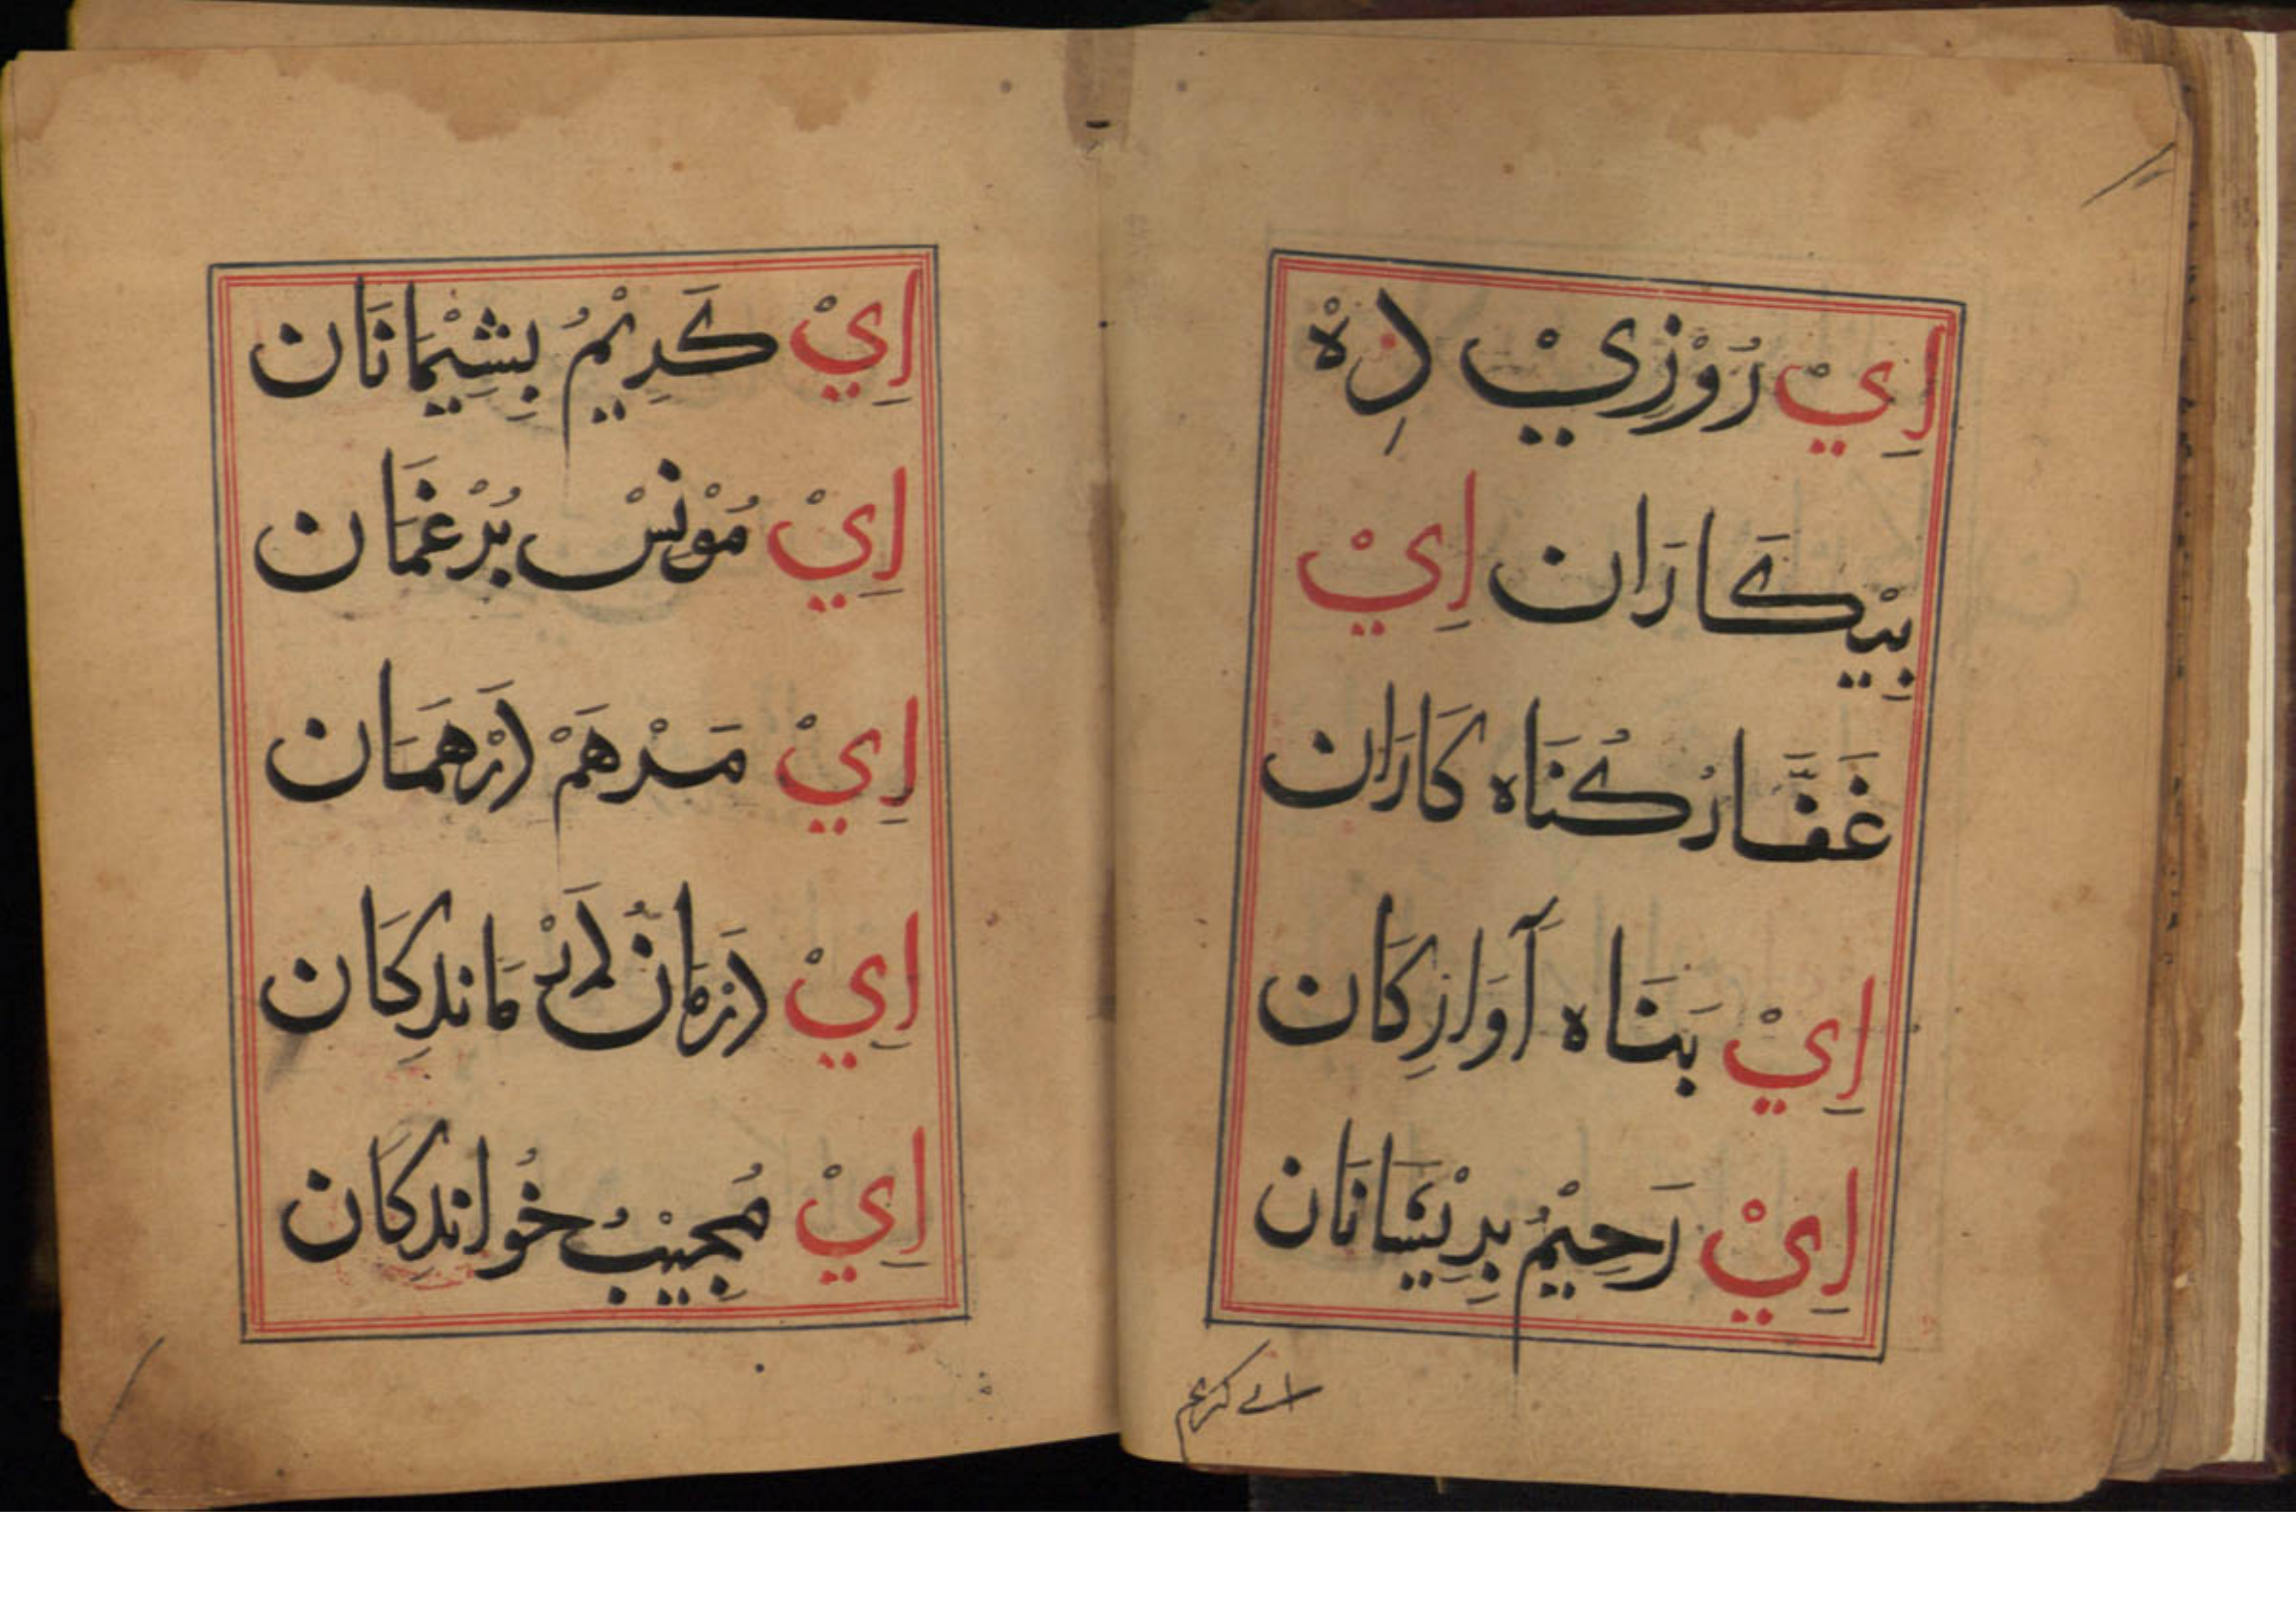 اِيْ رُوْزِيْ دِهْ
بِيْكَارَان اِيْ
غَفَّارُ كُنَاه كَارَان
اِيْ بَنَاه آوَارِكَان
اِيْ رَحِيْمُ بِرِيْشَانَان
اے کریم
اِيْ كَرِيْمُ بِشِيْمَانَان
اِيْ مُوْنِسْ بُرْغَمَان
اِيْ مَرْهَمْ
اِيْ مَانْدِكَان
اِيْ مُجِيْبُ خُوانْدِكَان